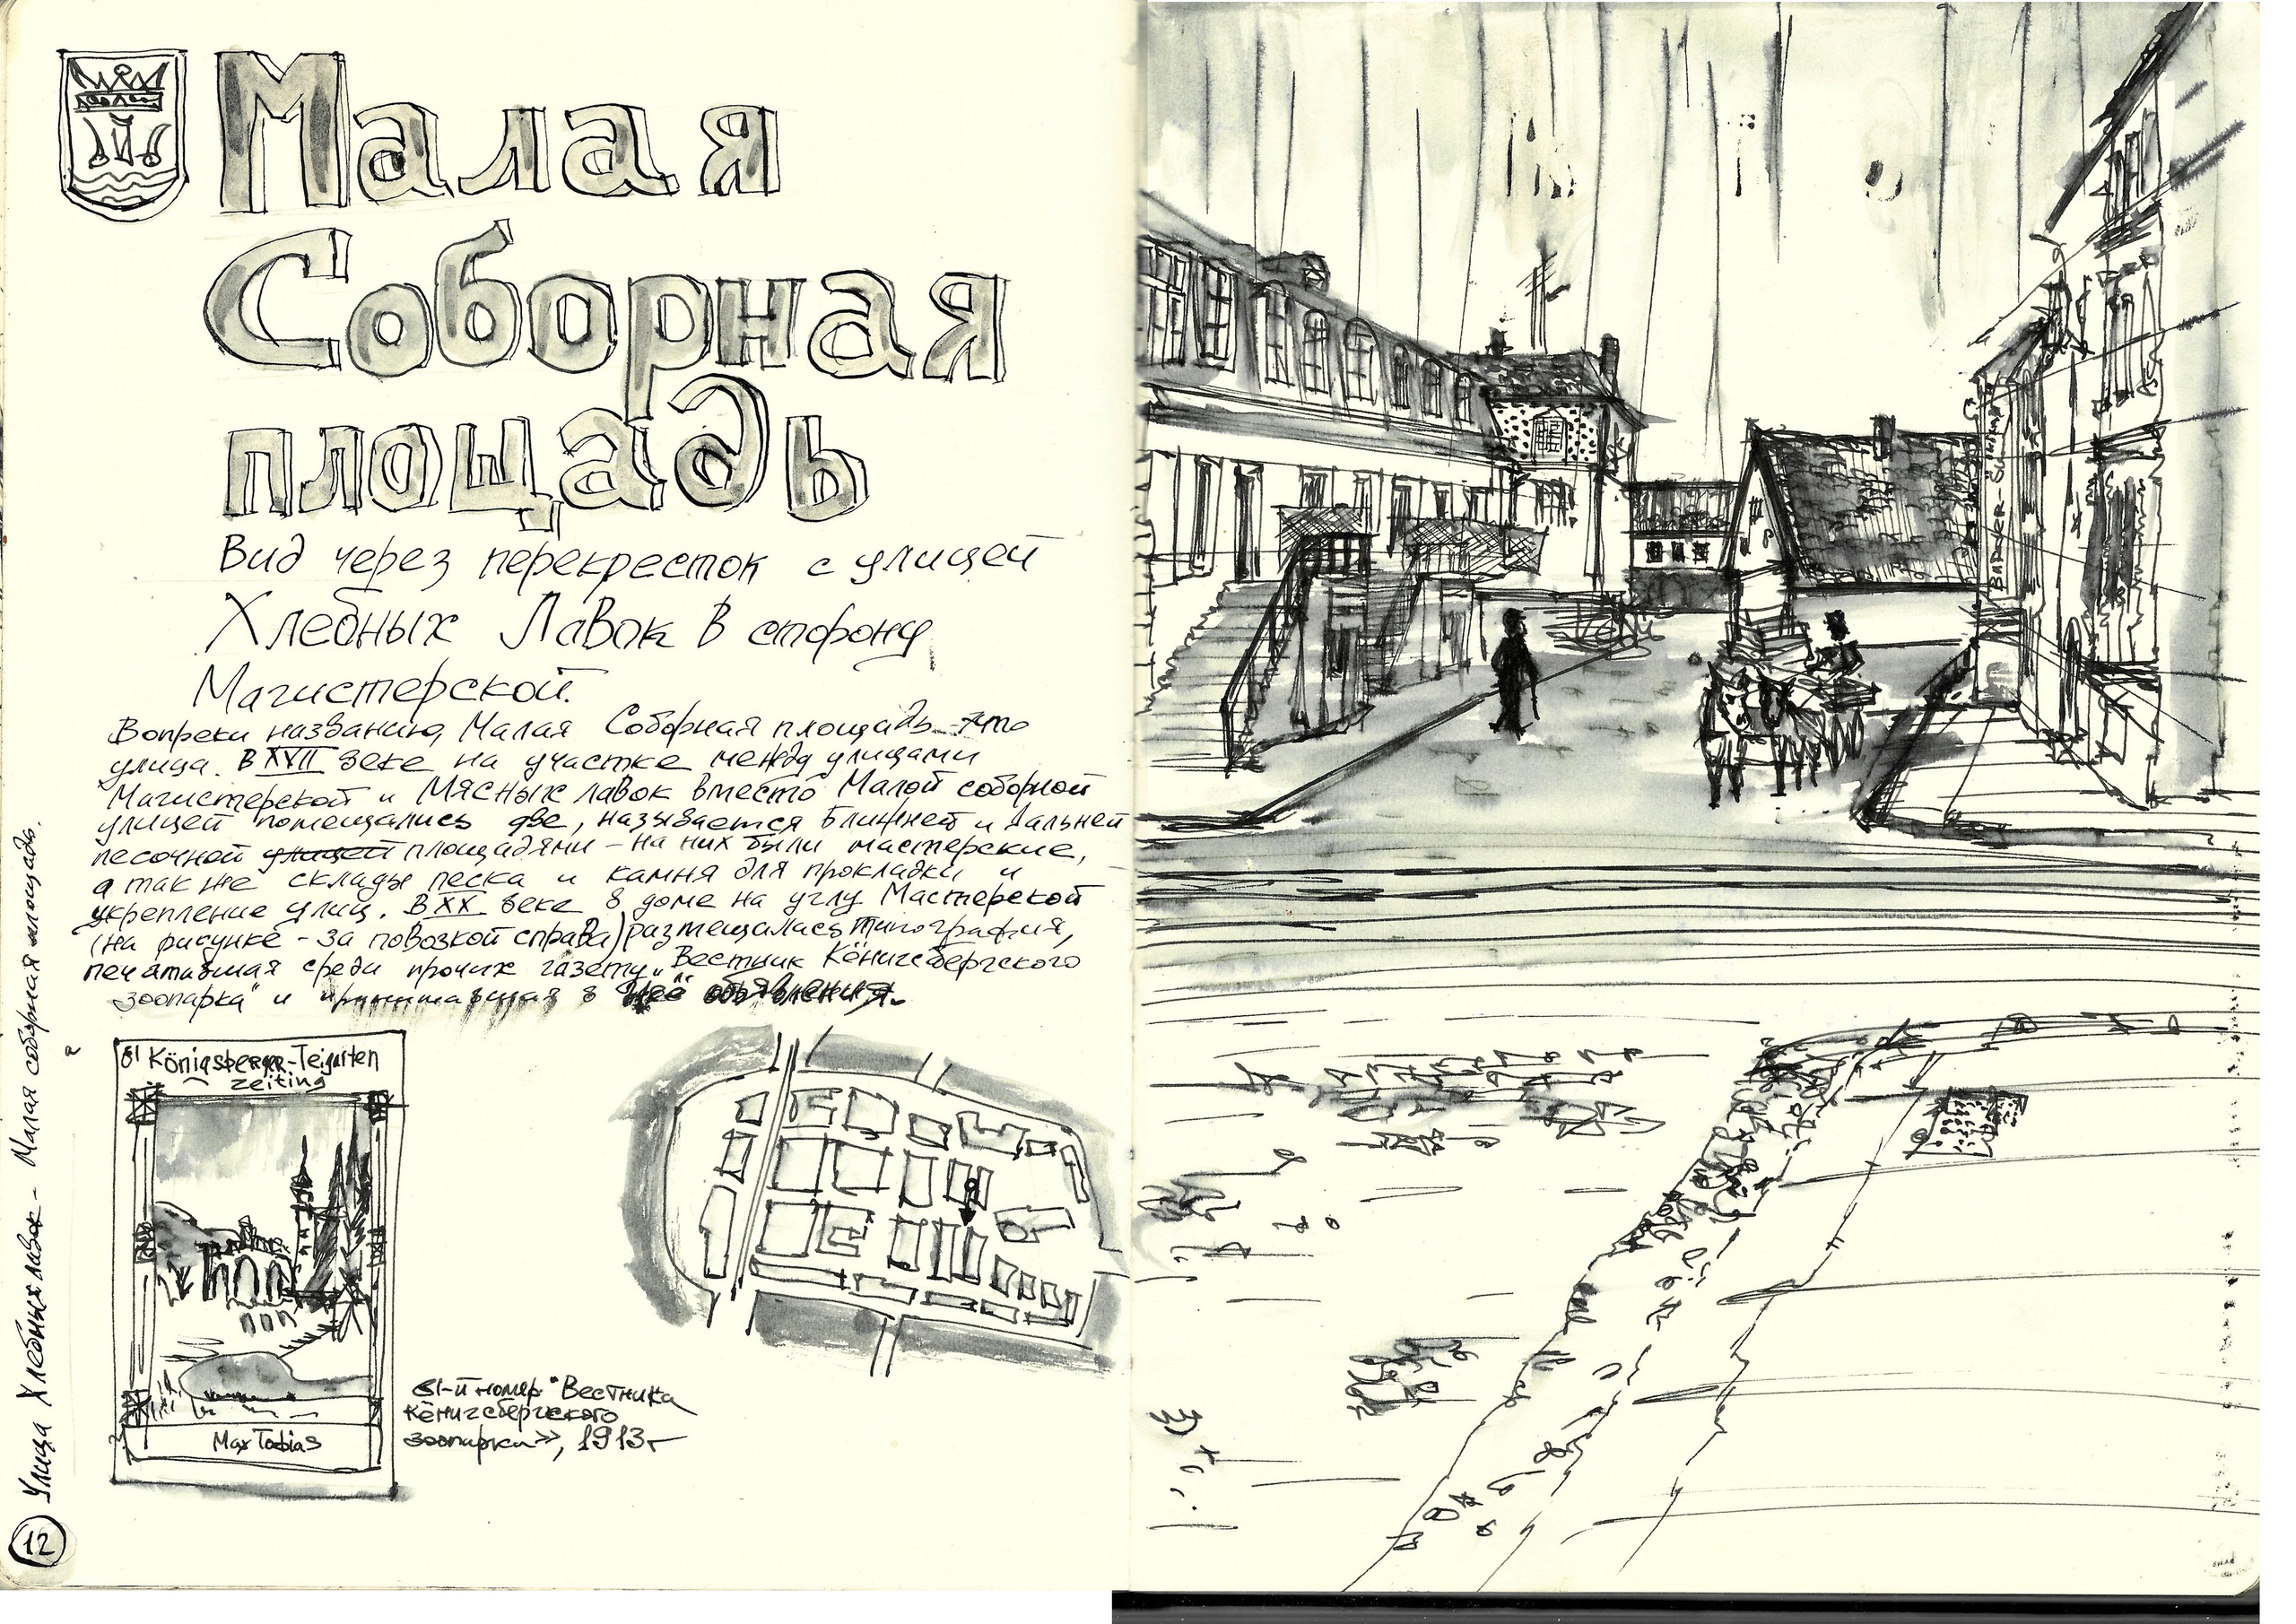 Малая
Соборная
площадь
Вид через перекресток с улицей
Хлебных Лавок в сторону
Магистерской.
Вопреки названию, Малая Соборная площадь - это
улица. В XVII веке на участке между улицами
Магистерской и Мясных лавок вместо Малой соборной
улицей помещались две, называется Ближней и Дальней
песочной улицей площадями – на них были мастерские,
а так же склады песка и камня для прокладки и
укрепление улиц. В XX веке в доме на углу Мастерской
(на рисунке - за повозкой справа) размещалась типография,
печатавшая среди прочих газету „Вестник Кёнигсбергского
зоопарка" и принимавшая в неё объявления.
81 Königsberger-Teigarten
zeiting
Max Tobias
81-й номер "Вестника
Кёнигсбергского
зоопарка», 1913г
Улица Хлебных лавок - Малая соборная площадь.
12
BARBIER-